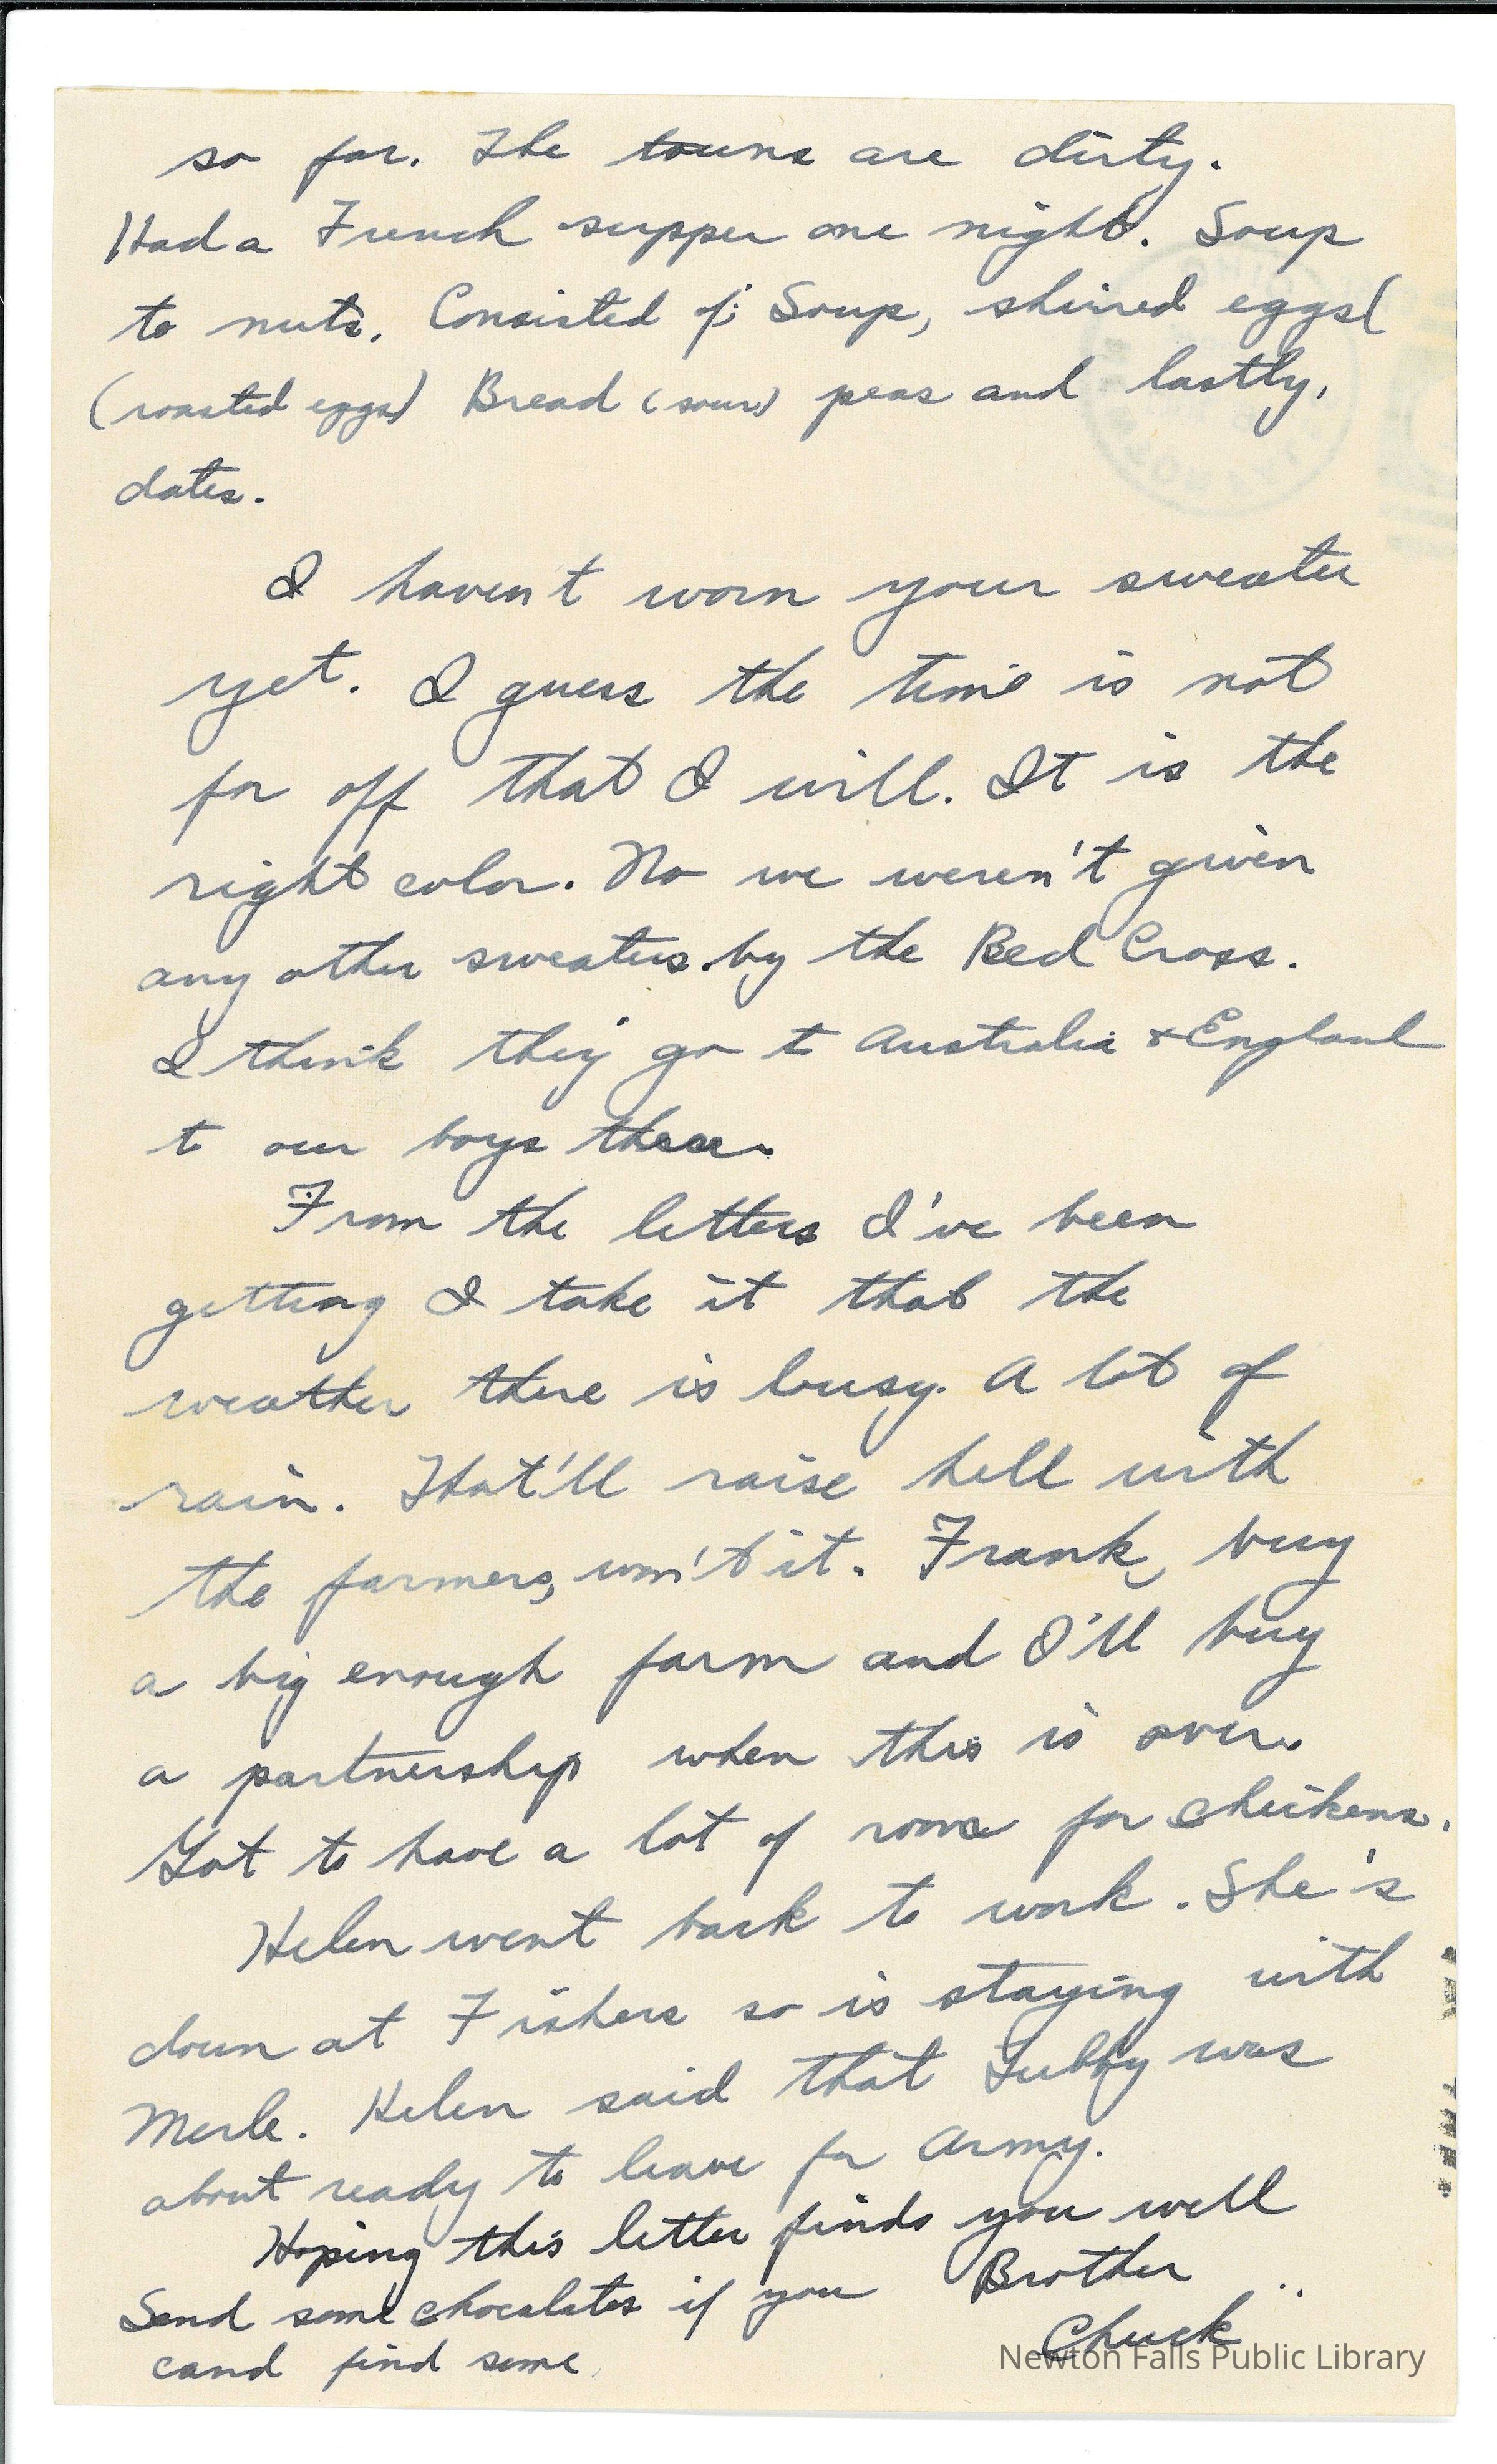 so far. The towns are dirty.
Had a French supper one night. Soup
to nuts. Consisted of; Soup, shirred eggs(
(roasted eggs) Bread (sour) peas and lastly,
dates.
I haven't worn your sweater
yet. I guess the time is not
far off that I will. It is the
right color. No we weren't given
any other sweaters by the Red Cross.
I think they go to Australia & England
to our boys there.
From the letters I've been
getting I take it that the
weather there is lousy. A lot of
rain. That'll raise hell with
the farmers, won't it. Frank, buy
a big enough farm and I'll buy
a partnership when this is over.
Got to have a lot of room for chickens.
Helen went back to work. She's
down at Fishers so is staying with
Merle. Helen said that Tubby was
about ready to leave for Army.
Hoping this letter finds you well
Brother
Chuck
Send some chocolates if you
cand find some
Newton Falls Public Library